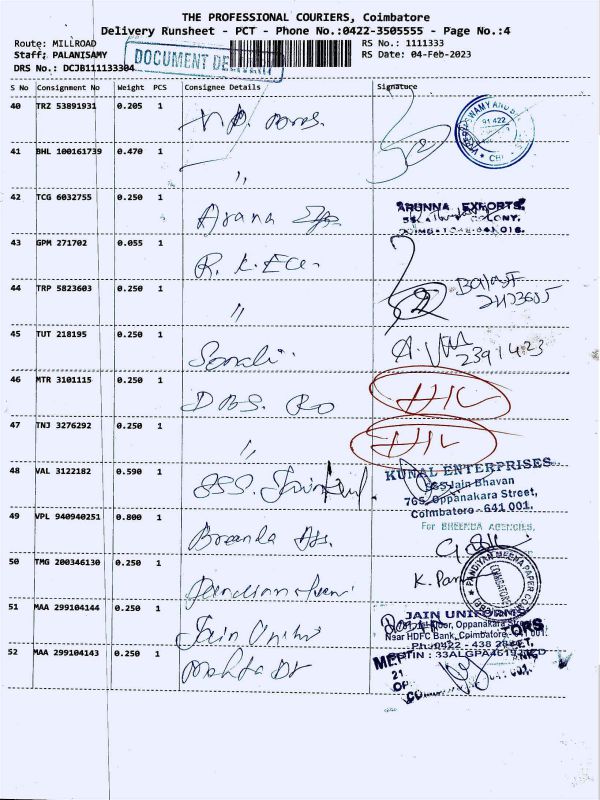 THE PROFESSIONAL COURIERS, Coimbatore
Delivery Runsheet - PCT - Phone No.:0422-3505555 - Page No.:4
Route: MILLROAD RS No.: 1111333
Staff: PALANISAMY RS Date: 04-Feb-2023
DOCUMENT DE
DRS No.: DCJB111133304
S No Consignment No Weight PCS Consignee Details Signature
40 TRZ 53891931 0.205 1
41 BHL 100161739 0.470 1 "
42 TCG 6032755 0.250 1
ARUNNA EXPORTS,
COLONY,
43 GPM 271702 0.055 1 R.K. Ece
44 TRP 5823603 0.250 1 "
Balaji
45 TUT 218195 0.250 1 Sonali
2391423
46 MTR 3101115 0.250 1 DBS. RO
47 TNJ 3276292 0.250 1 "
48 VAL 3122182 0.590 1 SSS. Jain
KUNAL ENTERPRISES
Jain Bhavan
765, Oppanakara Street,
Coimbatore - 641 001.
49 VPL 940940251 0.800 1
For BHEENDA AGENCIES,
50 TMG 200346130 0.250 1
K. Pan
PANDIYAN MEENA PAPER
COIMBATORE
51 MAA 299104144 0.250 1 Jain Unifor
JAIN UNIFORMS
Floor, Oppanakara Street,
Near HDFC Bank, Coimbatore - 641 001.
Ph: 0422 - 438
52 MAA 299104143 0.250 1 Mehta